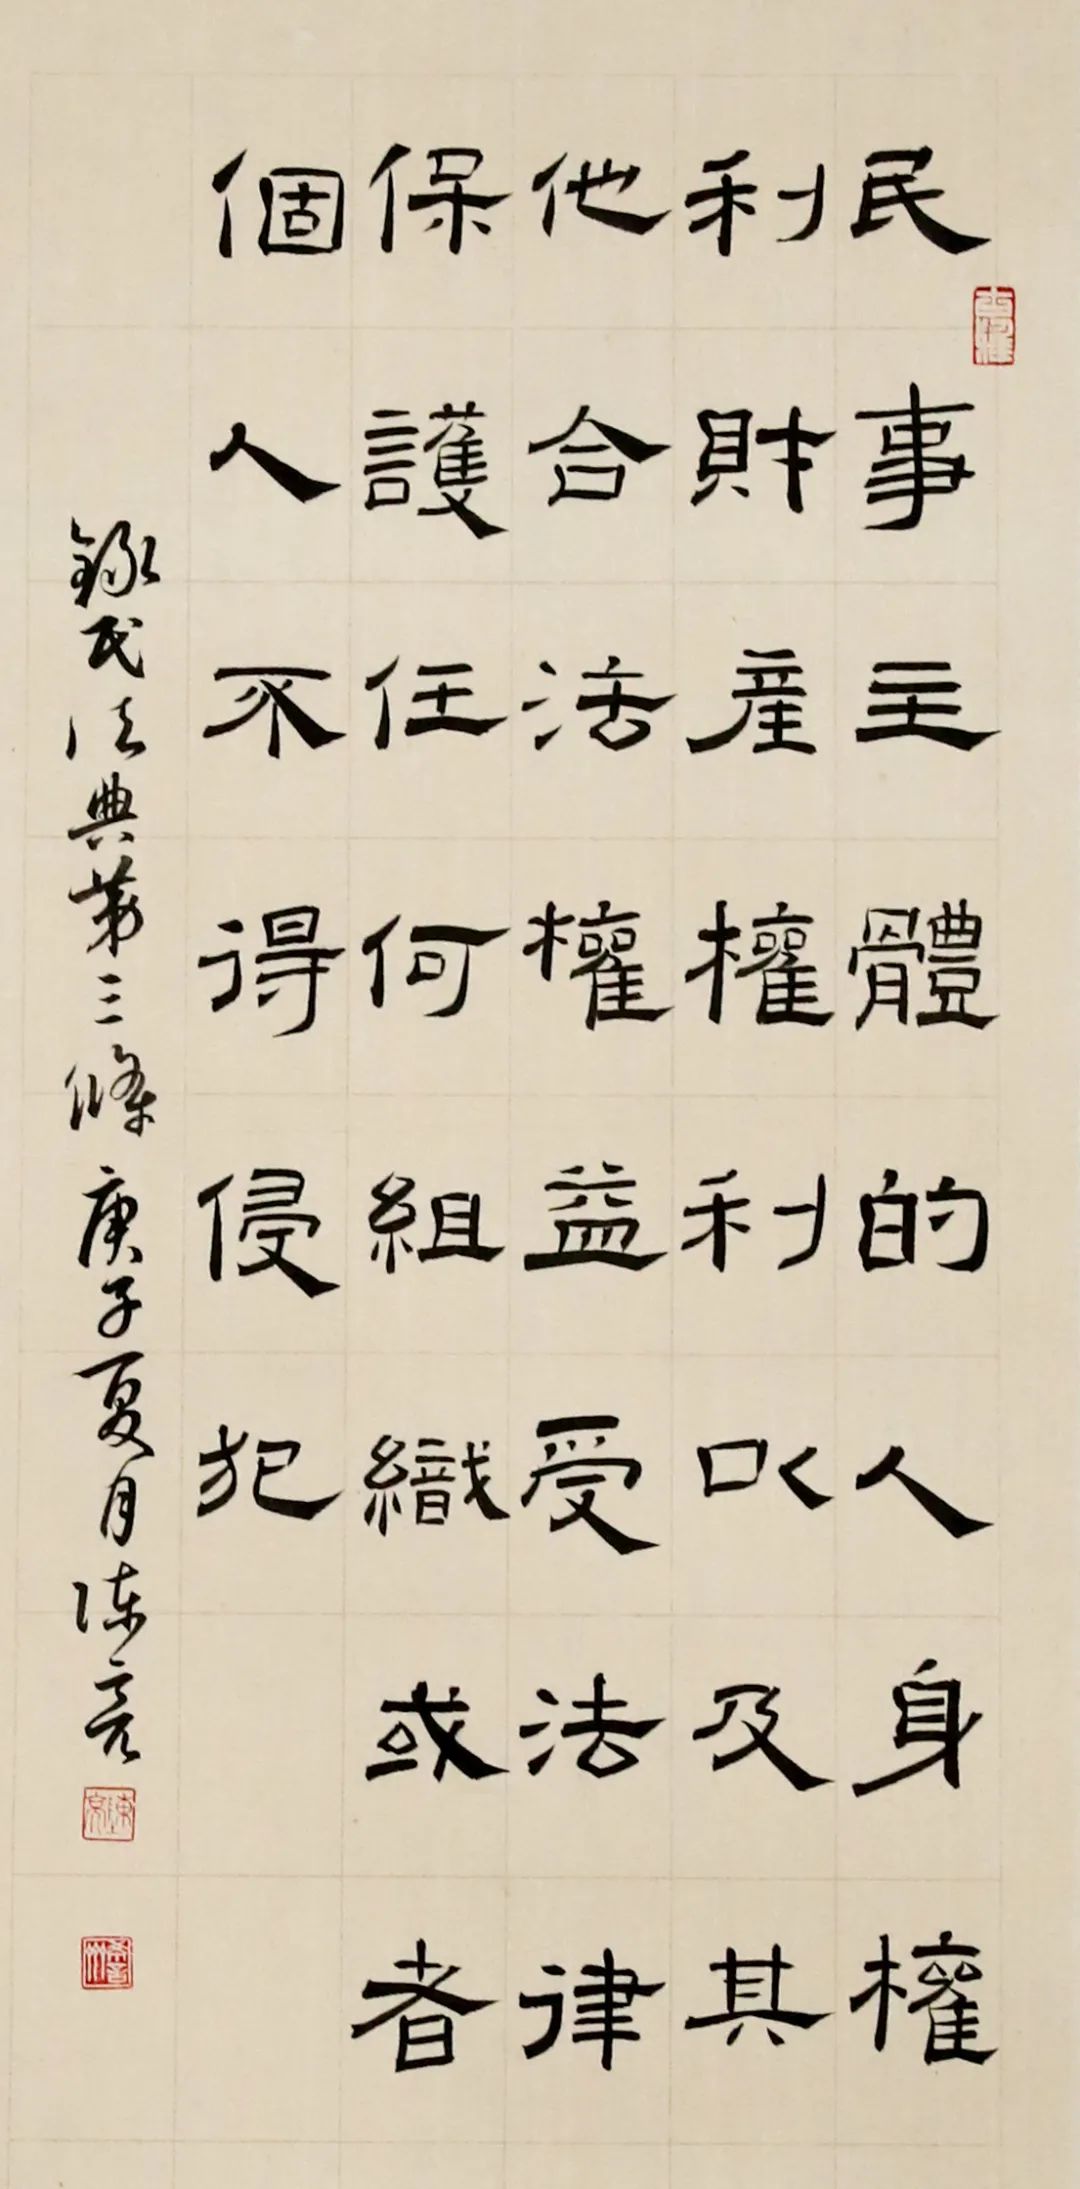 民事主體的人身權
利財產權利以及其
他合法權益受法律
保護任何組織或者
個人不得侵犯
錄民法典第三條 庚子夏月陳亮
陳亮